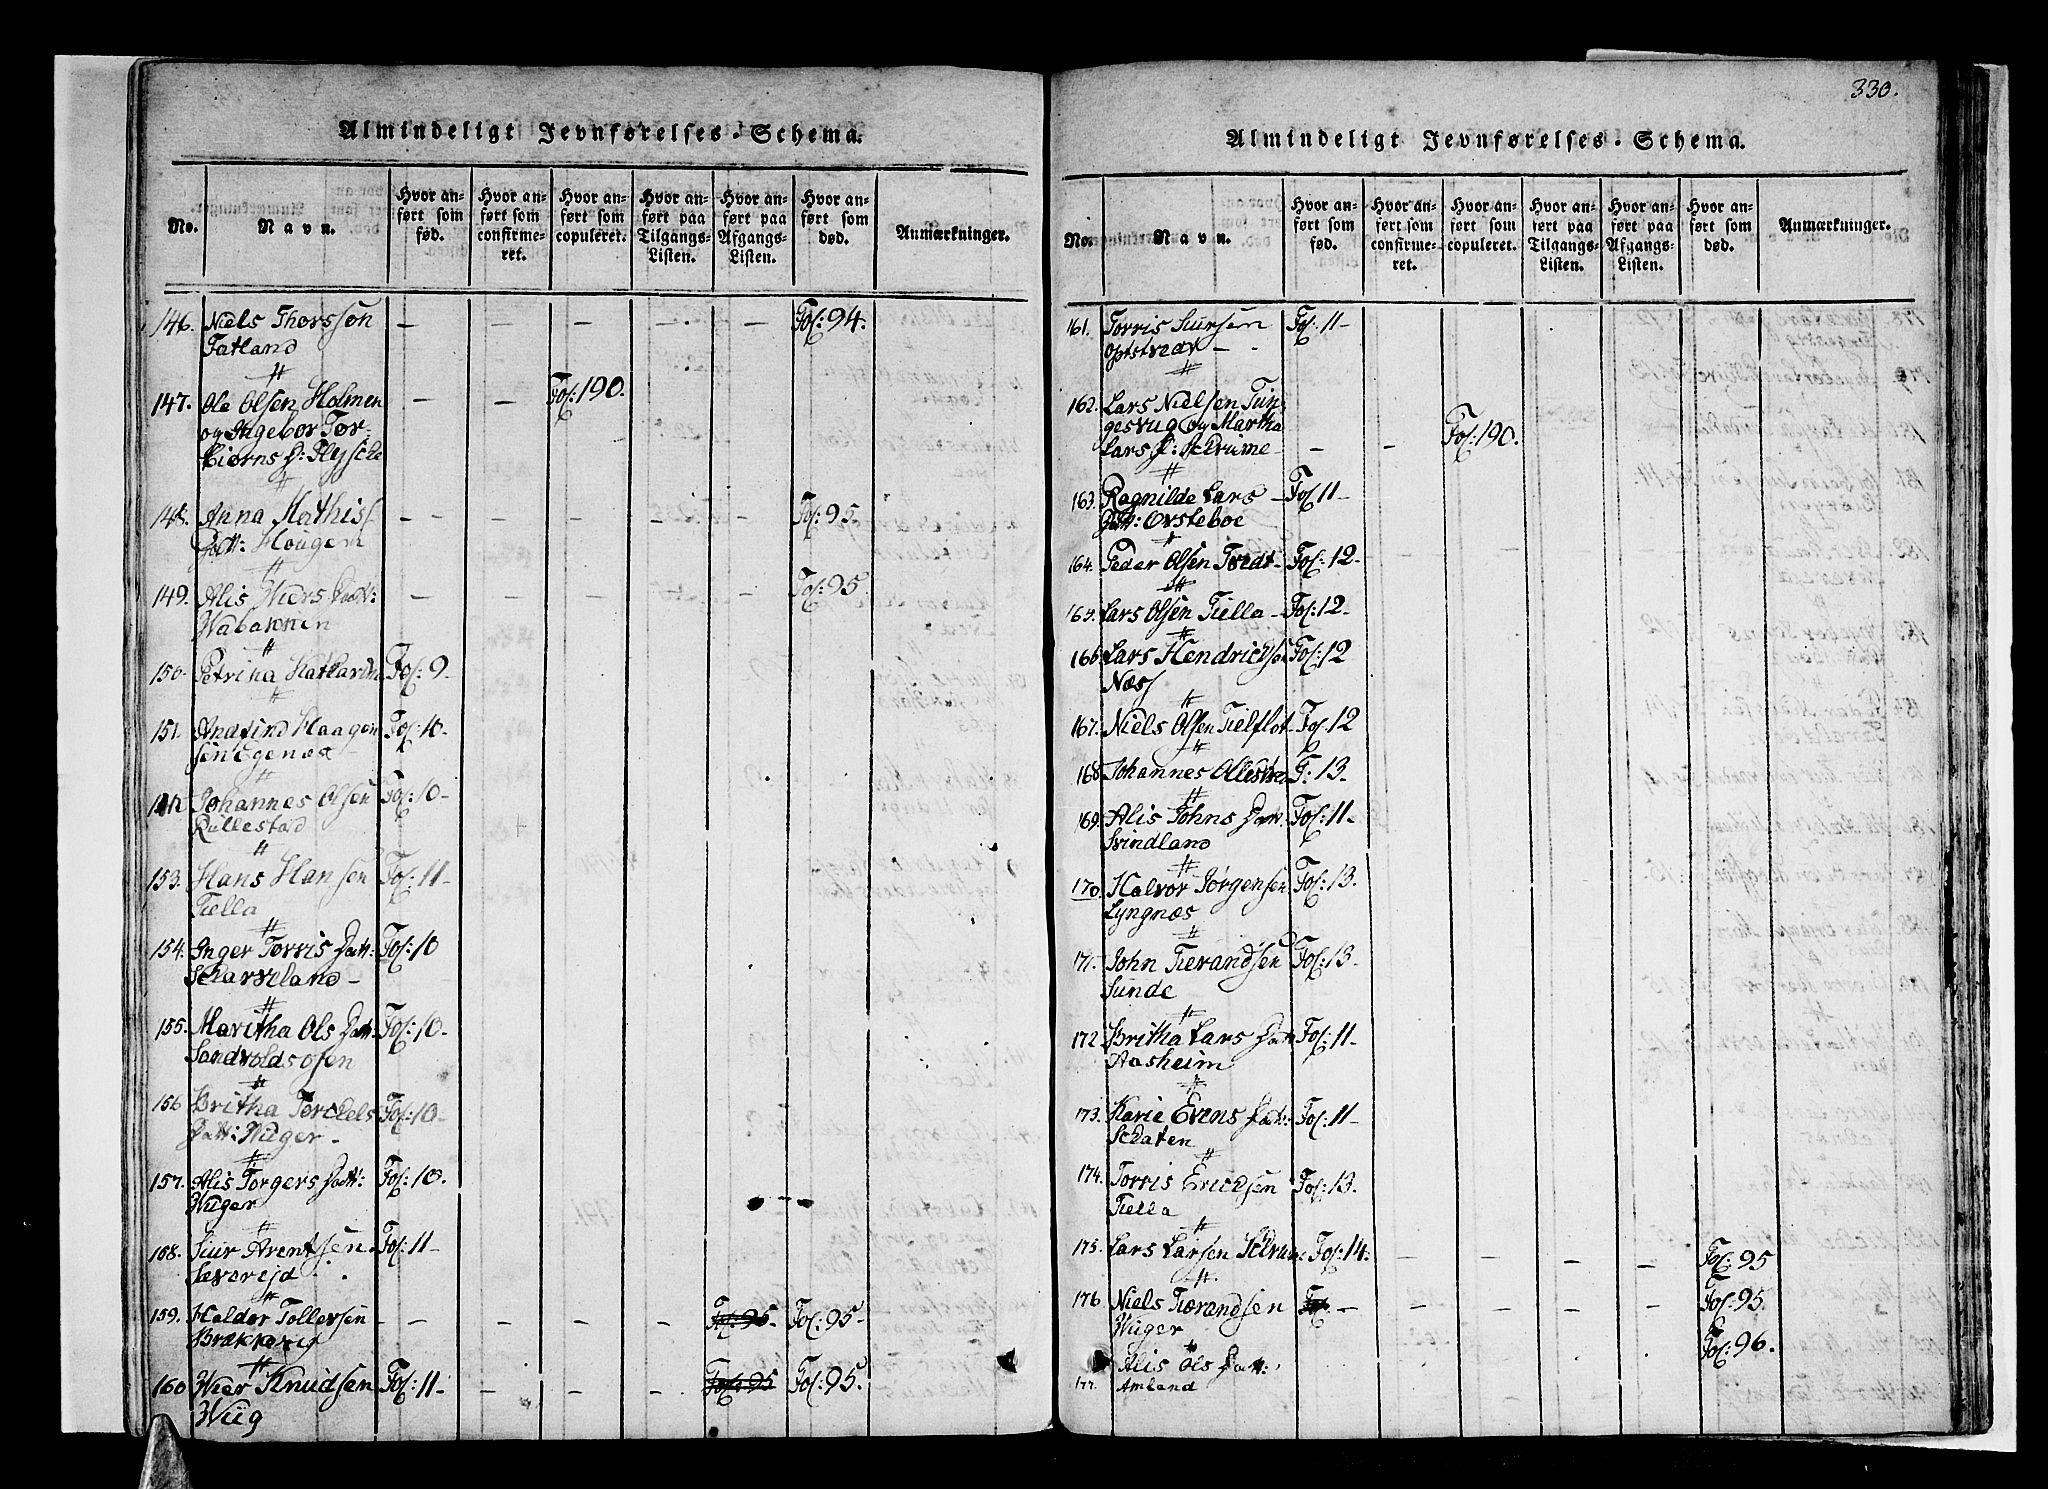 Almindeligt Jevnførelses-Schema.
No. | Navn. | Hvor anført som fød. | Hvor anført som confirmeret. | Hvor anført som copuleret. | Hvor anført paa Tilgangs-Listen. | Hvor anført paa Afgangs-Listen. | Hvor anført som død. | Anmærkninger.
146. Niels Thorssøn - - - - - Fol: 94.
Fatland
147. Ole Olsen Holmen - - Fol: 190.
og Ingebor Tor-
biørns D:
148. Anna Mathis - - - - - Fol: 95.
Datt: Hougen
149. Alis Wiers Datt: - - - - - Fol: 95
Wabakken
150. Petrina Katharina Fol: 9-
151. Andfind Haagen Fol: 10-
sen Egenæs
Johannes Olsen Fol: 10-
Rullestad
153. Hans Hansen Fol: 11-
Tiella
154. Inger Torris Datt: Fol: 10
Scharveland -
155. Maritha Ols Datt: Fol: 10-
Sandvoldsosen
156 Britha Torckels Fol: 10-
Datt: Wiiger -
157. Alis Torgers Datt: Fol: 10.
Wiiger
158. Siur Arentsen Fol: 11-
Sævareid
159. Haldor Tollevsen - - - - Fol: 95- Fol: 95-
Brække
160 Wier Knudsen Fol: 11- - - - Fol: 95 Fol: 95.
Wiig
330.
Almindeligt Jevnførelses-Schema.
No. | Navn. | Hvor anført som fød. | Hvor anført som confirmeret. | Hvor anført som copuleret. | Hvor anført paa Tilgangs-Listen. | Hvor anført paa Afgangs-Listen. | Hvor anført som død. | Anmærkninger.
161. Torris Siursen Fol: 11-
162. Lars Nielsen Tun-
gesvig og Martha
Lars D: - - Fol: 190.
163. Ragnilde Lars - Fol: 11-
Datt: Ørsteboe
164. Peder Olsen Tvedt- Fol: 12-
165. Lars Olsen Tiella- Fol: 12-
166 Lars Hendricksen Fol: 12
Næss
167. Niels Olsen Tielflot- Fol: 12
168 Johannes F: 13-
169. Alis Johns Datt: Fol: 11-
Svindland
170. Halvor Jørgensen Fol: 13.
Lyngnæs
171. John Tierandsen Fol: 13-
Sunde
172. Britha Lars Datt Fol: 11-
Aasheim
173. Karie Evens Datt: Fol: 11-
Schaten
174. Torris Ericksen Fol: 13.
Tiella
175. Lars Larsen Fol: 14. - - - - Fol: 95
176. Niels Tierandsen - - - - - Fol: 95.
Wiiger
Alis Ols Datt: Fol: 96.
177. Amland